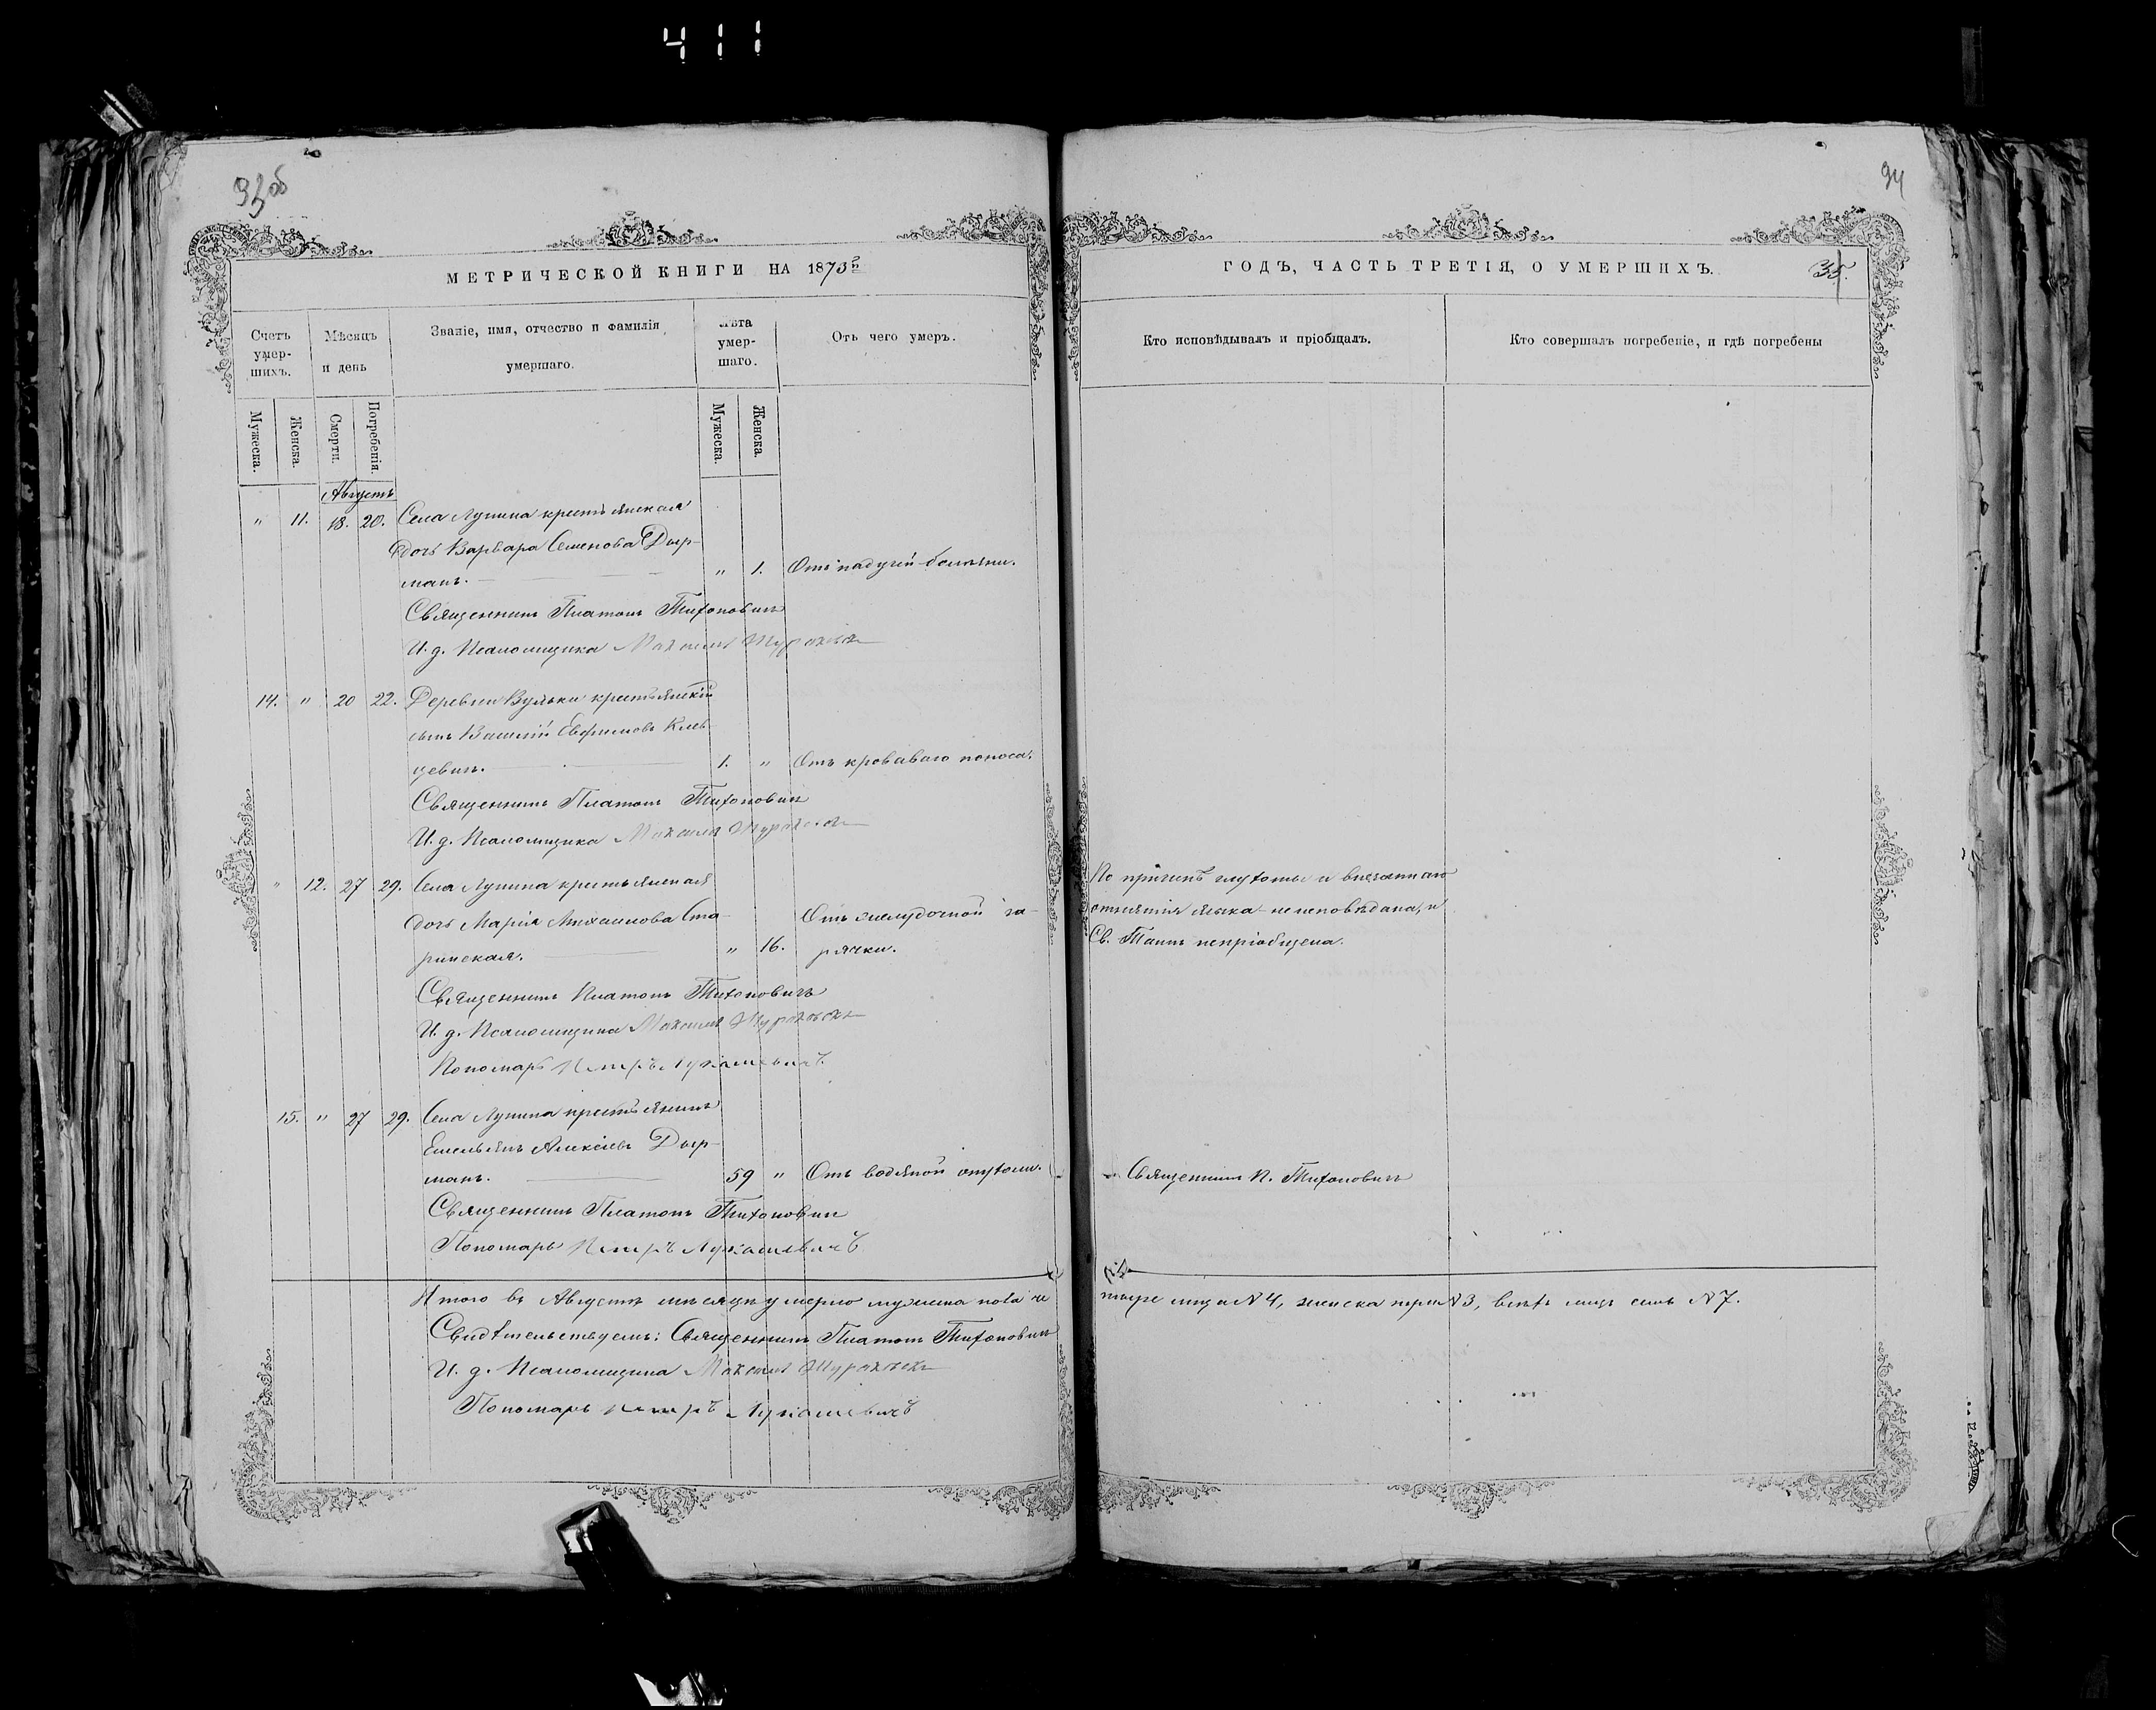 411
93 об
94
МЕТРИЧЕСКОЙ КНИГИ НА 1873й
ГОДЪ, ЧАСТЬ ТРЕТІЯ, О УМЕРШИХЪ.
35.
Счетъ умер-шихъ.
Мѣсяцъ и день
Званіе, имя, отчество и фамилія умершаго.
Лѣта умер-шаго.
Отъ чего умеръ.
Кто исповѣдывалъ и пріобщалъ.
Кто совершалъ погребеніе, и гдѣ погребены
Мужеска.
Женска.
Смерти.
Погребенія.
Мужеска.
Женска.
Августъ
" 11. 18. 20. Села Лунина крестьянская
дочь Варвара Семенова Дыр-
манъ. " 1. Отъ падучей болѣзни.
Священникъ Платонъ Тихоновичъ
И. д. Псаломщика
14. " 20 22. Деревни Вульки крестьянскій
сынъ Василій Евфимовъ
цевичъ. 1. " Отъ кроваваго поноса.
Священникъ Платонъ Тихоновичъ
И. д. Псаломщика
" 12. 27 29. Села Лунина крестьянская
дочь Марія Михаилова Ста-
ринская. " 16. Отъ желудочной го-
рячки.
По причинѣ глухоты и внезапнаго
отнятія языка неисповѣдана, и
Св. Таинъ непріобщена.
Священникъ Платонъ Тихоновичъ
И. д. Псаломщика
Пономарь Петръ Лукашевичъ
15. " 27 29. Села Лунина крестьянинъ
Емельянъ Алексіевъ Дыр-
манъ. 59 " Отъ водяной опухоли.
Священникъ П. Тихоновичъ
Священникъ Платонъ Тихоновичъ
Пономарь Петръ Лукашевичъ
Итого въ Августѣ мѣсяцѣ умерло мужеска пола че
тыре лица № 4, женска три № 3, всѣхъ лицъ семь № 7.
Свидѣтельствуемъ: Священникъ Платонъ Тихоновичъ
И. д. Псаломщика
Пономарь Петръ Лукашевичъ